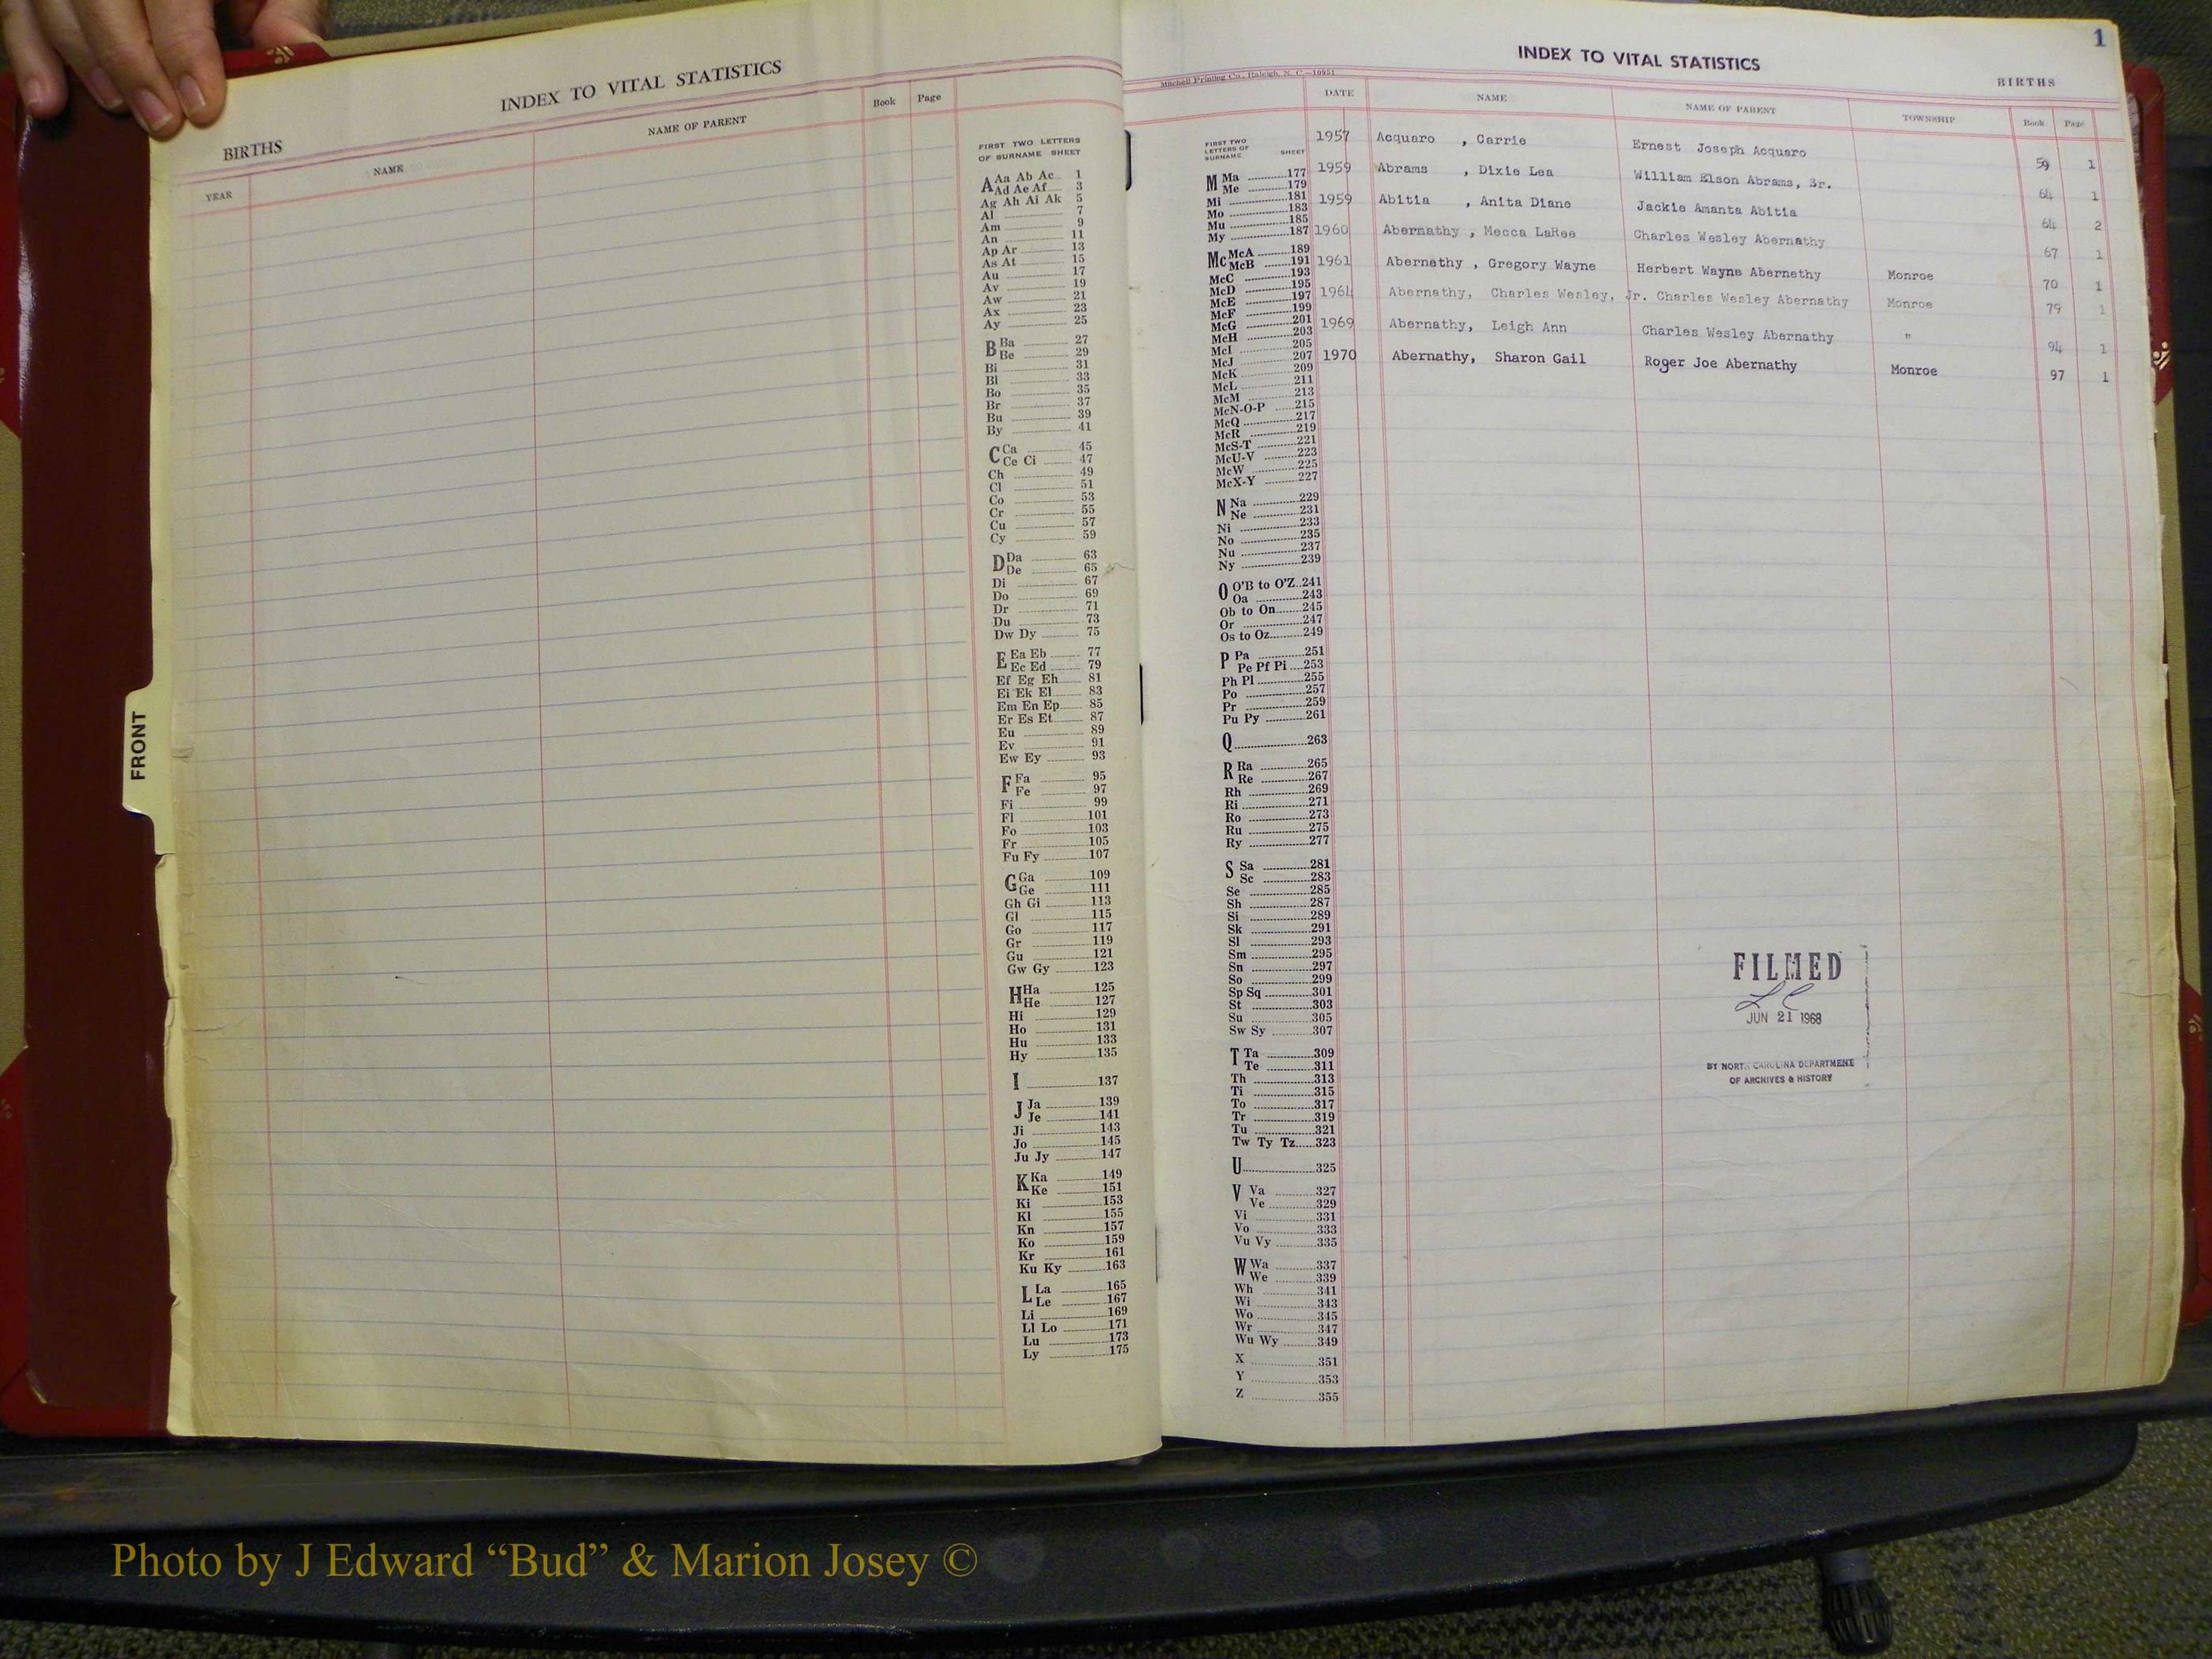 INDEX TO VITAL STATISTICS
BIRTHS
YEAR NAME NAME OF PARENT Book Page
FIRST TWO LETTERS
OF SURNAME SHEET
A Aa Ab Ac 1
Ad Ae Af 3
Ag Ah Ai Ak 5
Al 7
Am 9
An 11
Ap Ar 13
As At 15
Au 17
Av 19
Aw 21
Ax 23
Ay 25
B Ba 27
Be 29
Bi 31
Bl 33
Bo 35
Br 37
Bu 39
By 41
C Ca 45
Ce Ci 47
Ch 49
Cl 51
Co 53
Cr 55
Cu 57
Cy 59
D Da 63
De 65
Di 67
Do 69
Dr 71
Du 73
Dw Dy 75
E Ea Eb 77
Ec Ed 79
Ef Eg Eh 81
Ei Ek El 83
Em En Ep 85
Er Es Et 87
Eu 89
Ev 91
Ew Ey 93
F Fa 95
Fe 97
Fi 99
Fl 101
Fo 103
Fr 105
Fu Fy 107
G Ga 109
Ge 111
Gh Gi 113
Gl 115
Go 117
Gr 119
Gu 121
Gw Gy 123
H Ha 125
He 127
Hi 129
Ho 131
Hu 133
Hy 135
I 137
J Ja 139
Je 141
Ji 143
Jo 145
Ju Jy 147
K Ka 149
Ke 151
Ki 153
Kl 155
Kn 157
Ko 159
Kr 161
Ku Ky 163
L La 165
Le 167
Li 169
Ll Lo 171
Lu 173
Ly 175
FRONT
1
INDEX TO VITAL STATISTICS
Mitchell Printing Co., Raleigh, N. C.—10951
BIRTHS
DATE NAME NAME OF PARENT TOWNSHIP Book Page
1957 Acquaro , Carrie Ernest Joseph Acquaro 59 1
1959 Abrams , Dixie Lea William Elson Abrams, Sr. 64 1
1959 Abitia , Anita Diane Jackie Amanta Abitia 64 2
1960 Abernathy , Mecca LaRee Charles Wesley Abernathy 67 1
1961 Abernathy , Gregory Wayne Herbert Wayne Abernethy Monroe 70 1
1964 Abernathy, Charles Wesley, Jr. Charles Wesley Abernathy Monroe 79 1
1969 Abernathy, Leigh Ann Charles Wesley Abernathy " 94 1
1970 Abernathy, Sharon Gail Roger Joe Abernathy Monroe 97 1
FIRST TWO
LETTERS OF
SURNAME SHEET
M Ma 177
Me 179
Mi 181
Mo 183
Mu 185
My 187
Mc McA 189
McB 191
McC 193
McD 195
McE 197
McF 199
McG 201
McH 203
McI 205
McJ 207
McK 209
McL 211
McM 213
McN-O-P 215
McQ 217
McR 219
McS-T 221
McU-V 223
McW 225
McX-Y 227
N Na 229
Ne 231
Ni 233
No 235
Nu 237
Ny 239
O O'B to O'Z 241
Oa 243
Ob to On 245
Or 247
Os to Oz 249
P Pa 251
Pe Pf Pi 253
Ph Pl 255
Po 257
Pr 259
Pu Py 261
Q 263
R Ra 265
Re 267
Rh 269
Ri 271
Ro 273
Ru 275
Ry 277
S Sa 281
Sc 283
Se 285
Sh 287
Si 289
Sk 291
Sl 293
Sm 295
Sn 297
So 299
Sp Sq 301
St 303
Su 305
Sw Sy 307
T Ta 309
Te 311
Th 313
Ti 315
To 317
Tr 319
Tu 321
Tw Ty Tz 323
U 325
V Va 327
Ve 329
Vi 331
Vo 333
Vu Vy 335
W Wa 337
We 339
Wh 341
Wi 343
Wo 345
Wr 347
Wu Wy 349
X 351
Y 353
Z 355
FILMED
JUN 21 1968
BY NORTH CAROLINA DEPARTMENT
OF ARCHIVES & HISTORY
Photo by J Edward “Bud” & Marion Josey ©